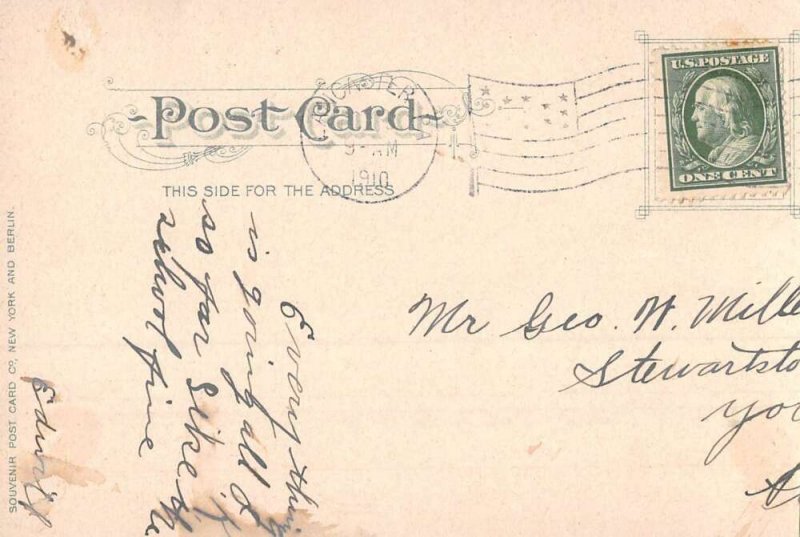 Post Card
THIS SIDE FOR THE ADDRESS
LANCASTER
9-AM
1910
U.S.POSTAGE
ONE CENT
Mr Geo. W. Mille
Stewartsto
Yo
Every thing
is going all
so far I like the
school fine
SOUVENIR POST CARD CO., NEW YORK AND BERLIN.